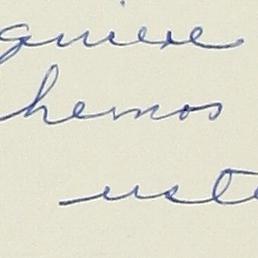 quiere
hemos
uste